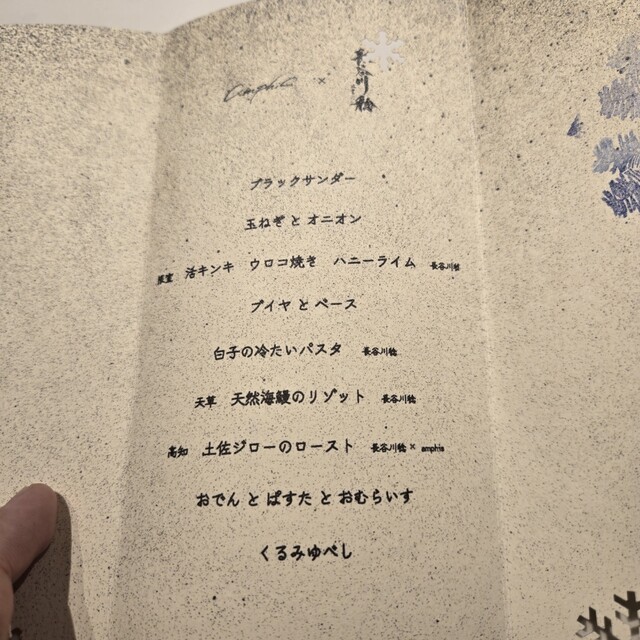 amphis × 長谷川稔
ブラックサンダー
玉ねぎ と オニオン
活キンキ ウロコ焼き ハニーライム 長谷川稔
ブイヤ と ベース
白子の冷たいパスタ 長谷川稔
天草 天然海鰻のリゾット 長谷川稔
高知 土佐ジローのロースト 長谷川稔 × amphis
おでん と ぱすた と おむらいす
くるみゆべし